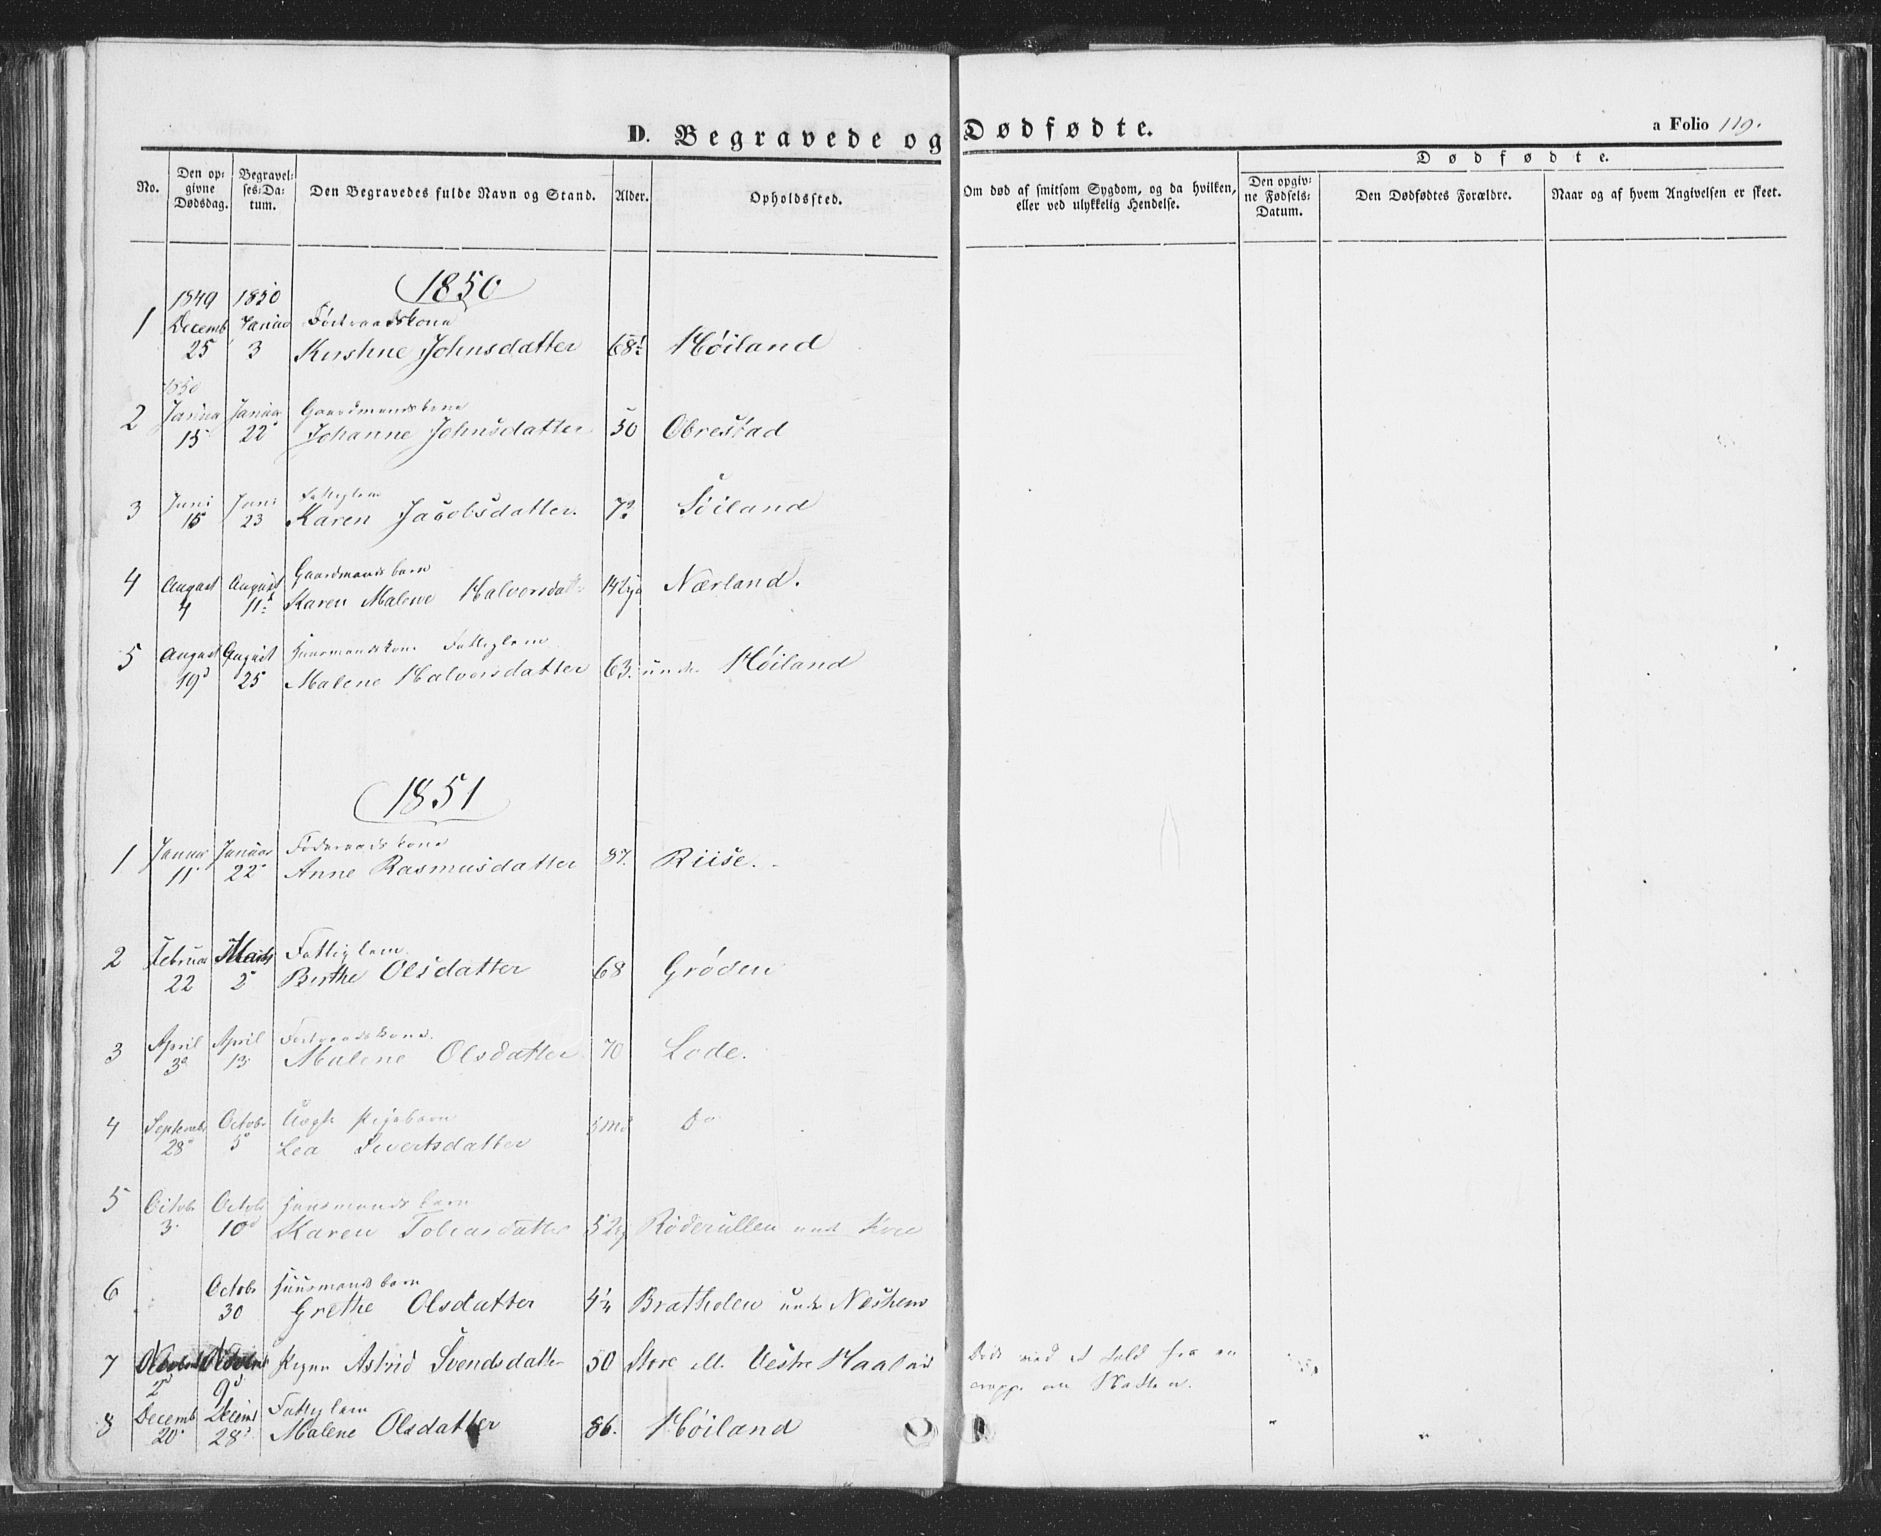 D. Begravede og Dødfødte.
a Folio 119.
No.
Den opgivne Dødsdag.
Begravelses-Datum.
Den Begravedes fulde Navn og Stand.
Alder.
Opholdssted.
Om død af smitsom Sygdom, og da hvilken, eller ved ulykkelig Hendelse.
Dødfødte.
Den opgivne Fødsels-Datum.
Den Dødfødtes Forældre.
Naar og af hvem Angivelsen er skeet.
1850
1849 1850
1 Decemb Januar Føderaadskone
25 3 Kirstine Johnsdatter 68 Høiland
1850
2 Janua Janua Gaardmandskone
15 22 Johanne Johnsdatter 50 Obrestad
3 Juni Juni Fattiglem
15 23 Karen Jacobsdatter. Høiland
4 August August Gaardmands barn
4 11 Karen Malene Halvorsdat Nærland.
5 August August Huusmandskone Fattiglem
19 25 Malene Halvorsdatter 63. under Høiland
1851
1 Januar Januar Føderaadskone
11 22 Anne Rasmusdatter 87. Riise.
2 Februar Marts Fattiglem
22 2 Berthe Olsdatter 68 Grøden
3 April April Føderaadskone
3 13 Malene Olsdatter 70 Lode.
4 Septemb Octobr Uægte Pigebarn
28 5 Lea Sivertsdatter 5 Md Do
5 Octobr Octobr Huusmands barn
3 10 Karen Tobiasdatter Røderullen under
6 Octobr Huusmands barn
30 Grethe Olsdatter 4¼ Bratholen under Næshem
7 Pigen Astrid Svendsdatter 50 Store elle Vestre Haaland Døde ved et fald fra en
2 9 trappe om Natten.
8 Decemb Decemb Fattiglem
20 28 Malene Olsdatter 86. Høiland